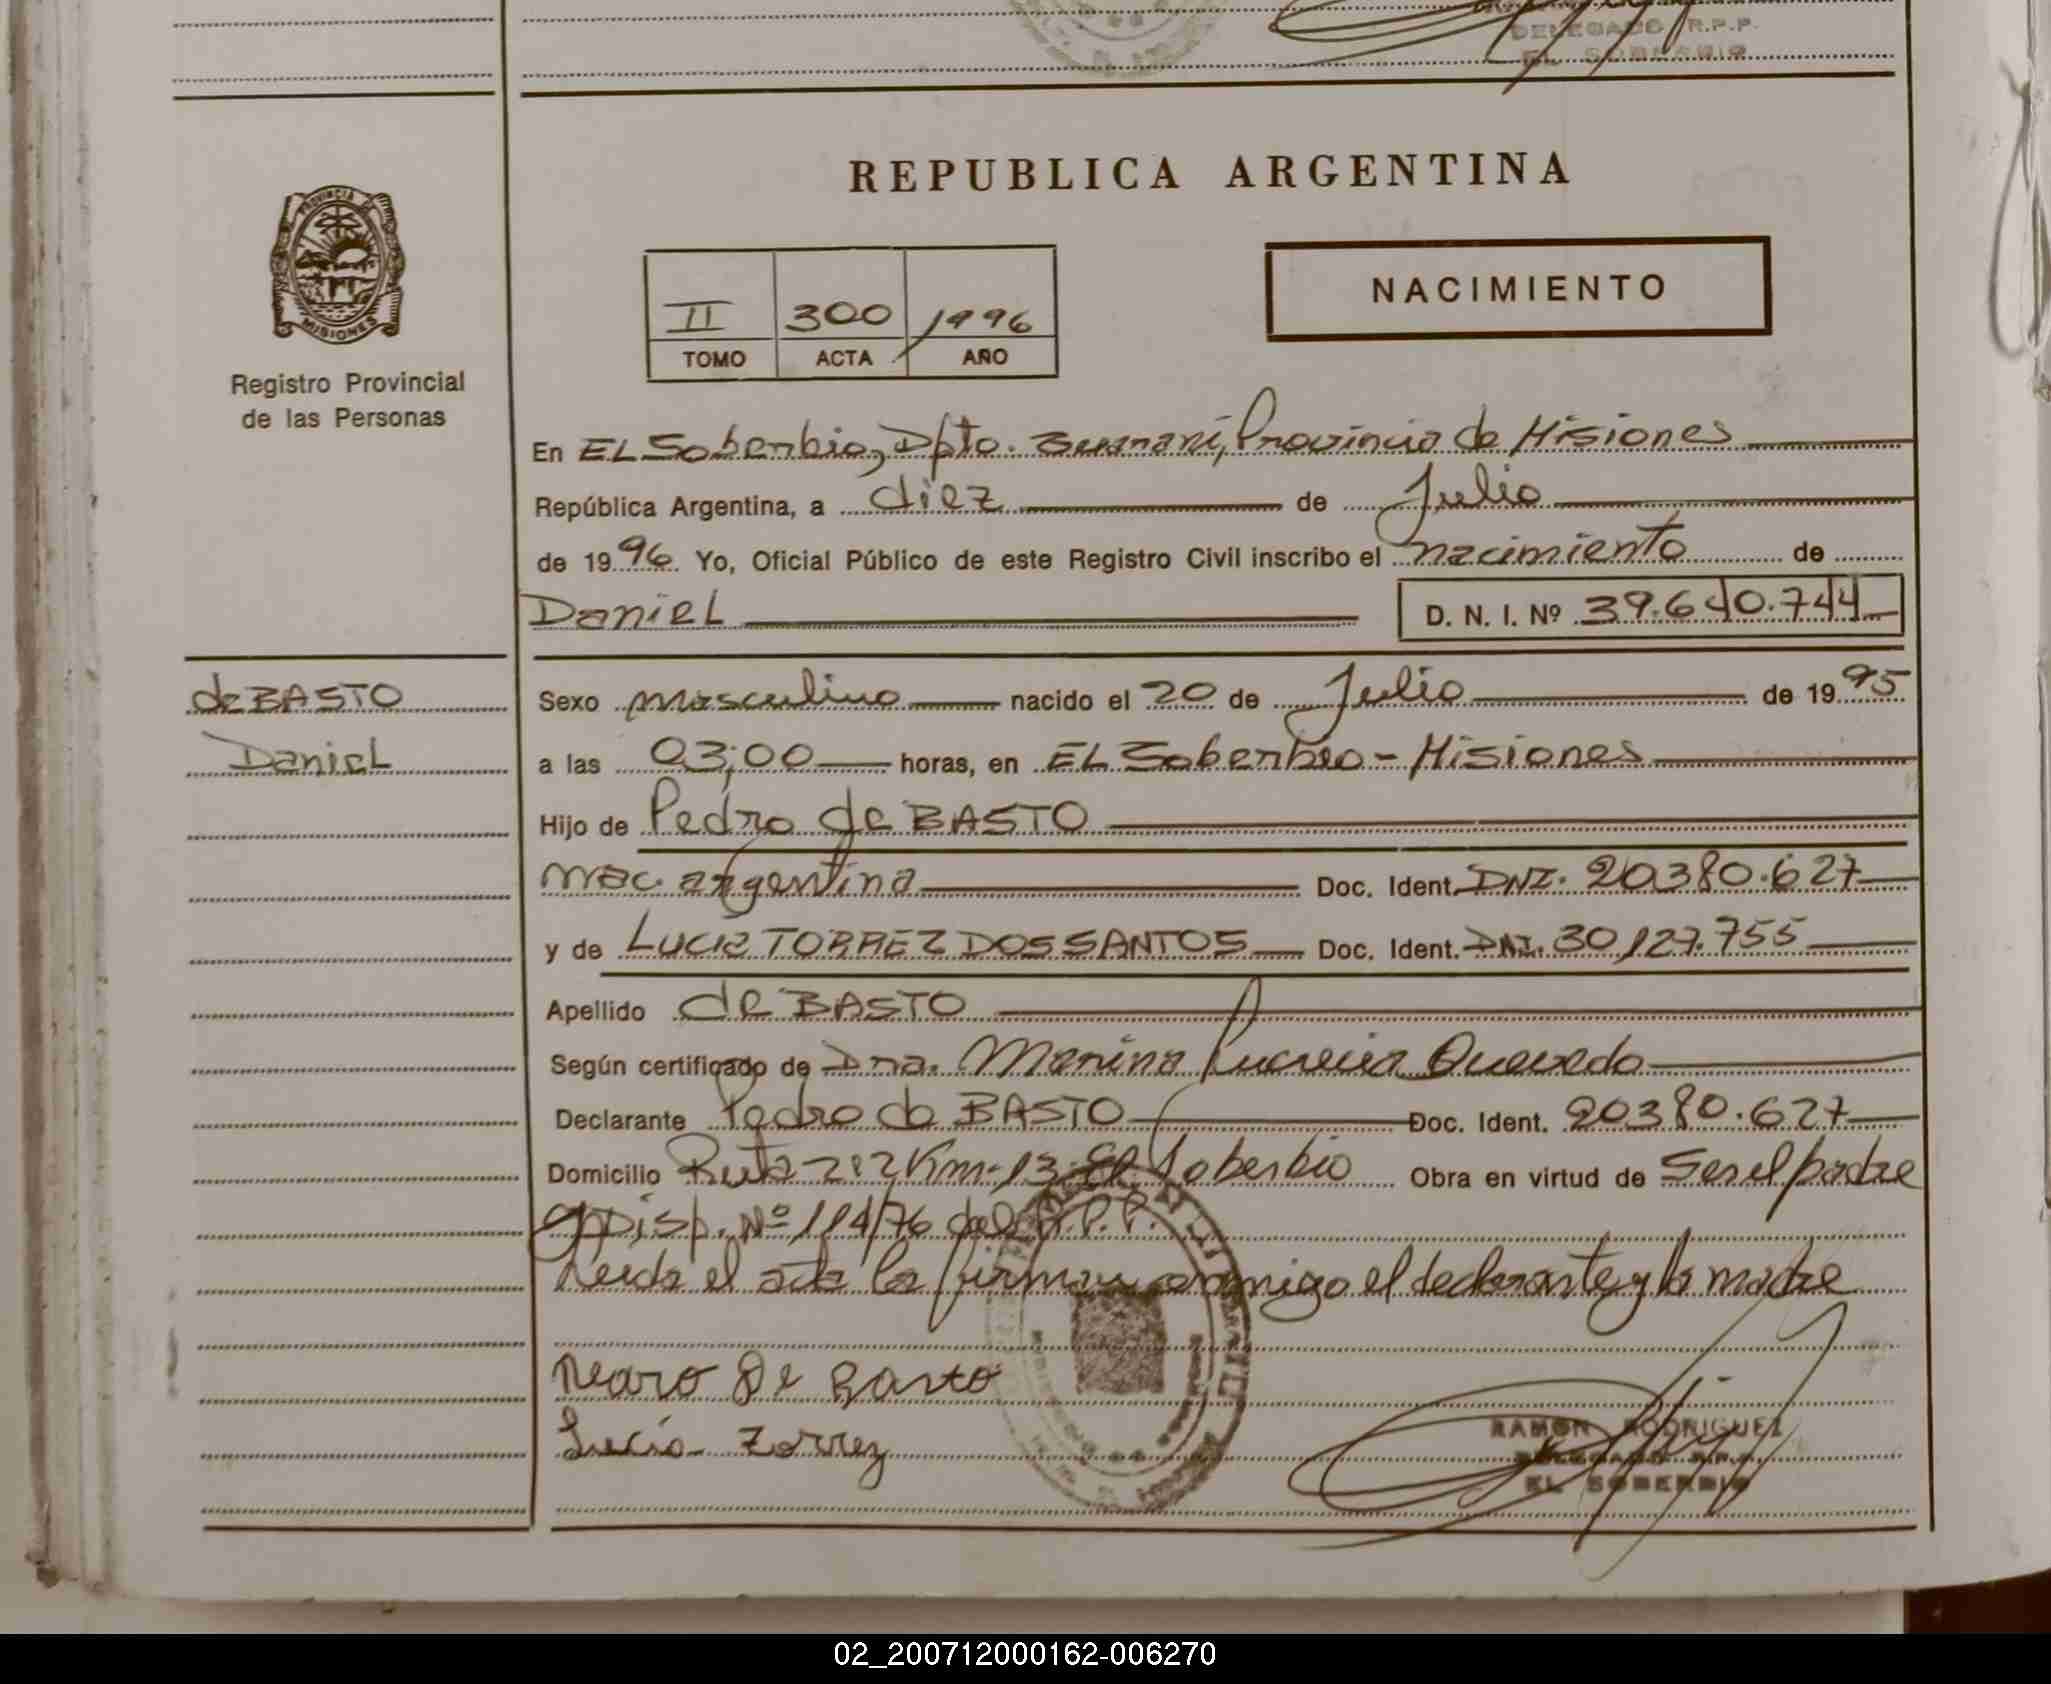 DELEGADO R.P.P.
EL SOBERBIO
REPUBLICA ARGENTINA
PROVINCIA DE
MISIONES
Registro Provincial
de las Personas
NACIMIENTO
II 300 1996
TOMO ACTA AÑO
En EL Soberbio, Dpto. Guaraní, Provincia de Misiones
República Argentina, a diez de Julio
de 1996 Yo, Oficial Público de este Registro Civil inscribo el nacimiento de
Daniel D. N. I. Nº 39.640.744
de BASTO
Daniel
Sexo masculino nacido el 20 de Julio de 1995
a las 03,00 horas, en EL Soberbio - Misiones
Hijo de Pedro de BASTO
nac. argentina Doc. Ident. DNI. 20380.627
y de Lucia TORREZ DOS SANTOS Doc. Ident. DNI. 30.127.755
Apellido de BASTO
Según certificado de Dra. Marina Lucrecia Quevedo
Declarante Pedro de BASTO Doc. Ident. 20380.627
Domicilio Ruta 212 Km-13-El Soberbio Obra en virtud de Ser el padre
Disp. Nº 114/76 del R.P.P.
Leida el acta la firman conmigo el declarante y la madre
Pedro De Basto
Lucia Torrez
RAMON RODRIGUEZ
DELEGADO R.P.P.
EL SOBERBIO
02_200712000162-006270